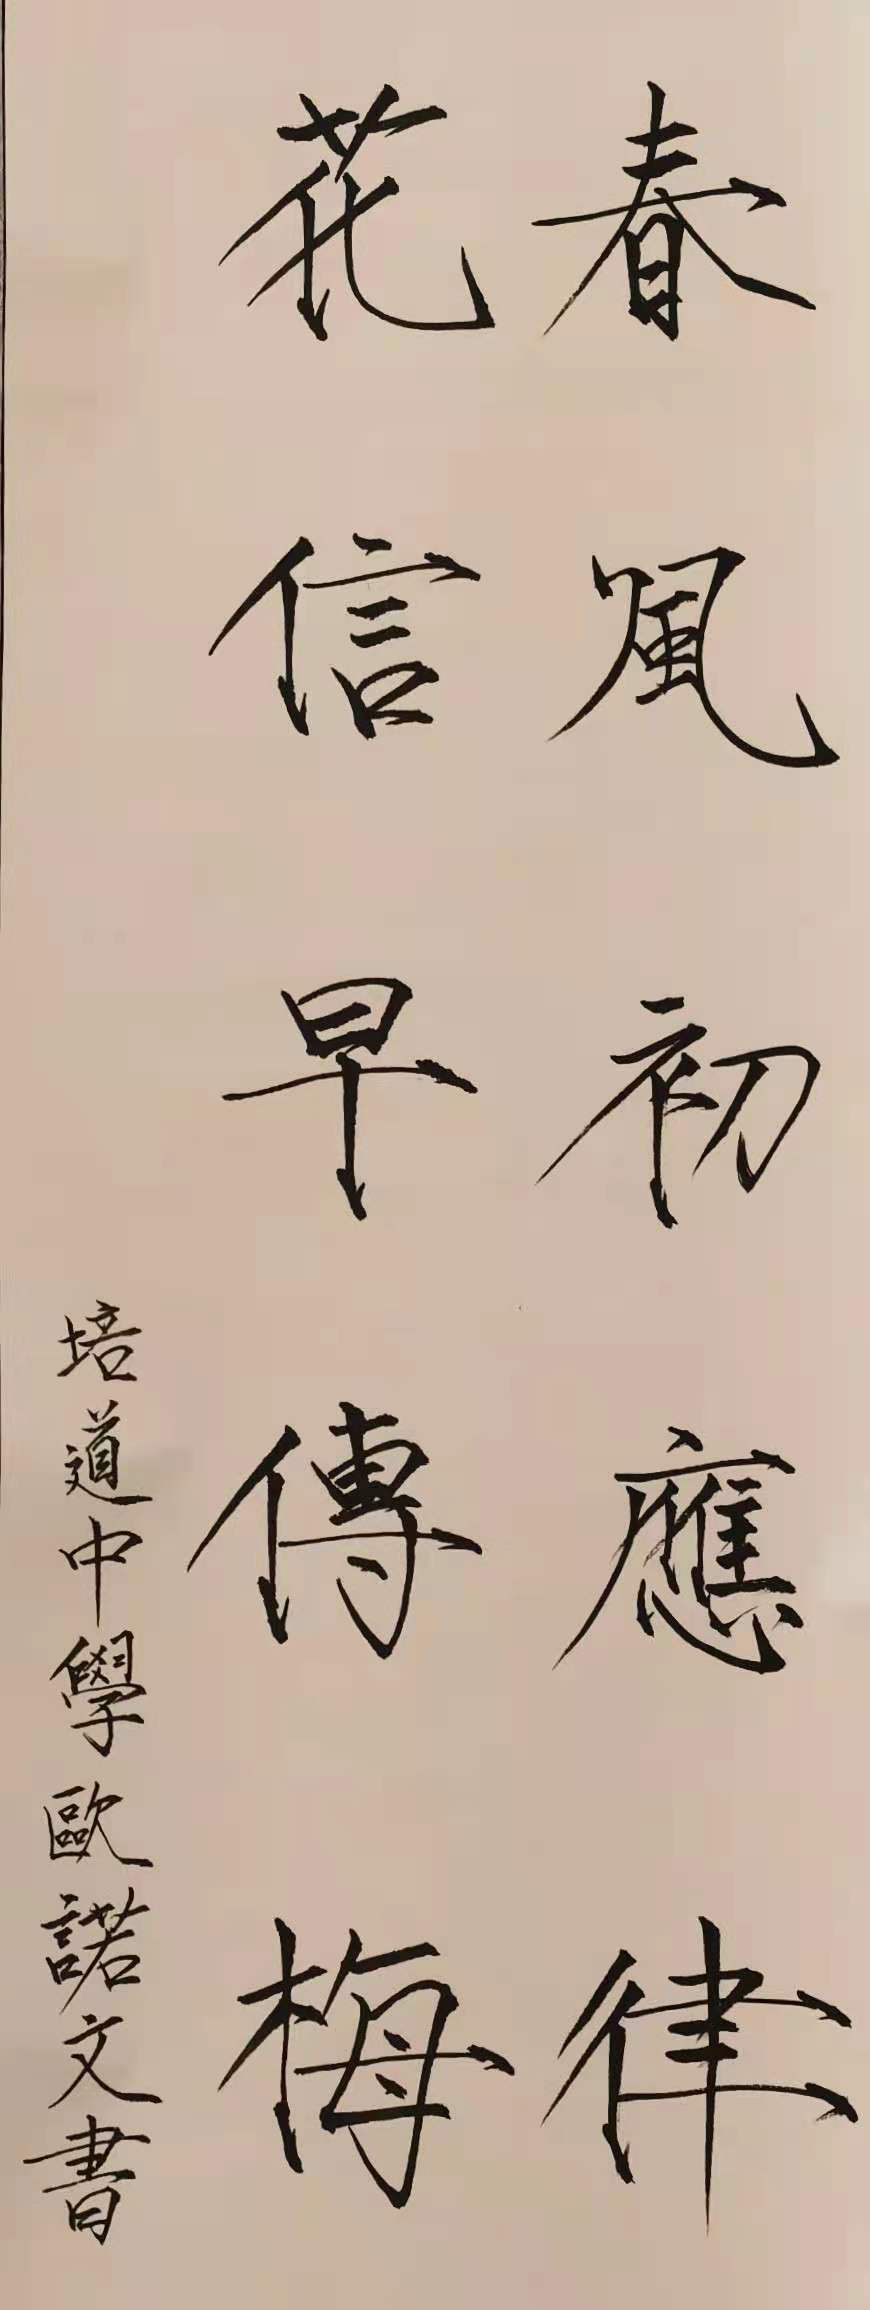 春風初應律
花信早傳梅
培道中學歐諾文書